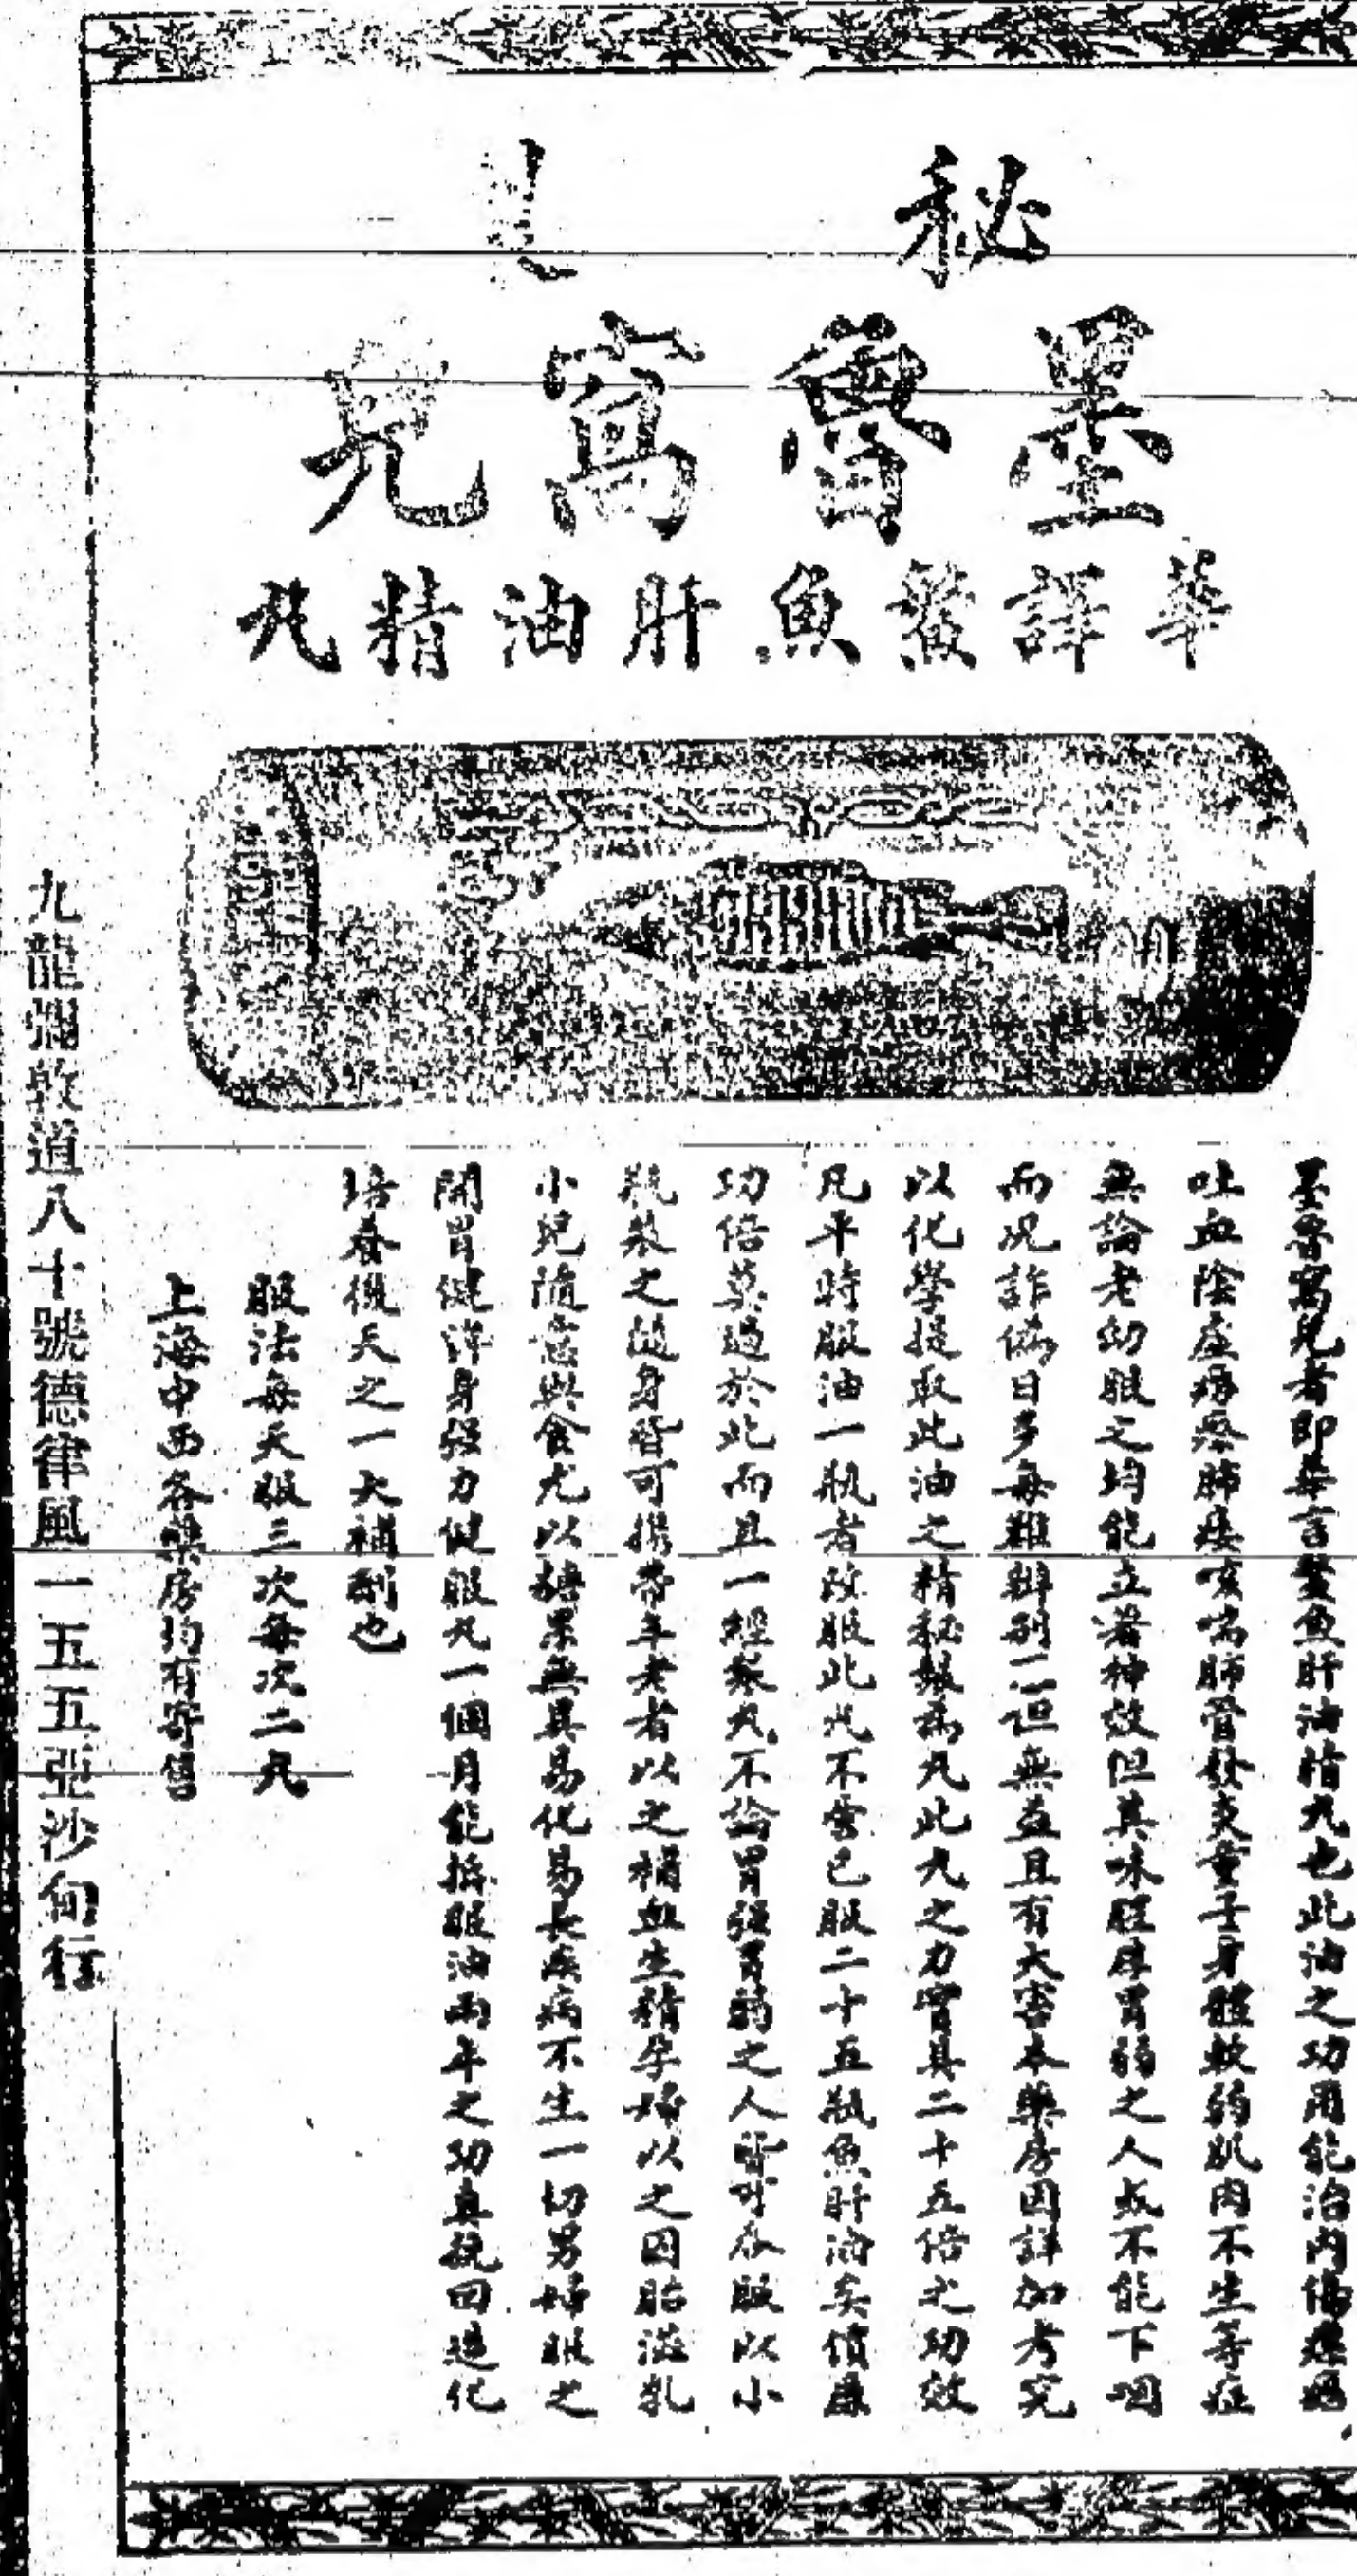 秘
墨魯寫兒
華譯鰵魚肝油精丸
墨魯寫兒者即華言鰵魚肝油精丸也此油之功用能治內傷
吐血陰虛癆瘵肺痿咳喘肺管發炎童子身體軟弱肌肉不生等症
無論老幼服之均能立著神效但其味腥膩胃弱之人或不能下咽
而況詐偽日多每難辦別不但無益且有大害本藥房因詳加考究
以化學提取此油之精秘製為丸此丸之力實具二十五倍之功效
凡平時服油一瓶者改服此丸不啻已服二十五瓶魚肝油矣價廉
功倍莫過於此而且一經製丸不論胃強胃弱之人皆可吞服以小
瓶裝之隨身皆可攜帶年老者以之補血生精孕婦以之固胎滋乳
小兒隨意與食尤以糖果無異易化易長疾病不生一切男婦服之
開胃健脾身強力健服丸一個月能抵服油兩年之功真挽回造化
培養後天之一大補劑也
服法每天服三次每次二丸
上海中西各藥房均有寄售
九龍彌敦道八十號德律風一五五亞沙甸行